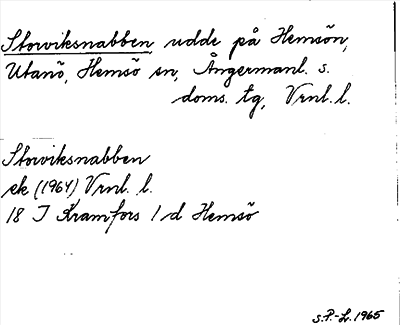 Storviksnabben udde på Hemsön,
Utanö, Hemsö sn, Ångermanl. s.
doms. tg, Vrnl. l.
Storviksnabben
ek (1964) Vrnl. l.
18 I Kramfors 1 d Hemsö
S.P.-L. 1965